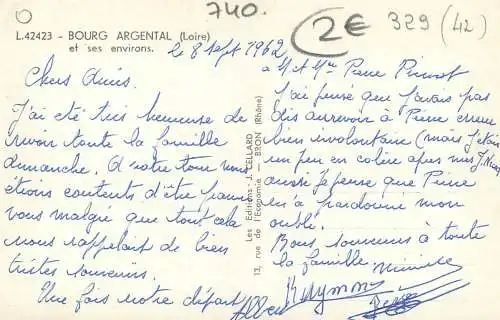 740.
2€
329
(42)
L.42423 - BOURG ARGENTAL (Loire)
et ses environs.
le 8 sept 1962
Chers Amis.
J'ai été très heureuse de
revoir toute la famille
dimanche. A notre tour nous
étions contents d'être parmi
vous malgré que tout cela
nous rappelait de bien
tristes souvenirs.
Une fois notre départ
Les Editions J. CELLARD
13, rue de l'Economie — BRON (Rhône)
a M et Mme Pierre
j'ai pensé que j'avais pas
dis aurevoir à Pierre erreur
bien involontaire (mais j'étais
un peu en colère après mes
aussi je pense que Pierre
m'a pardonné mon
oubli.
Bons souvenirs à toute
la famille
Raymond